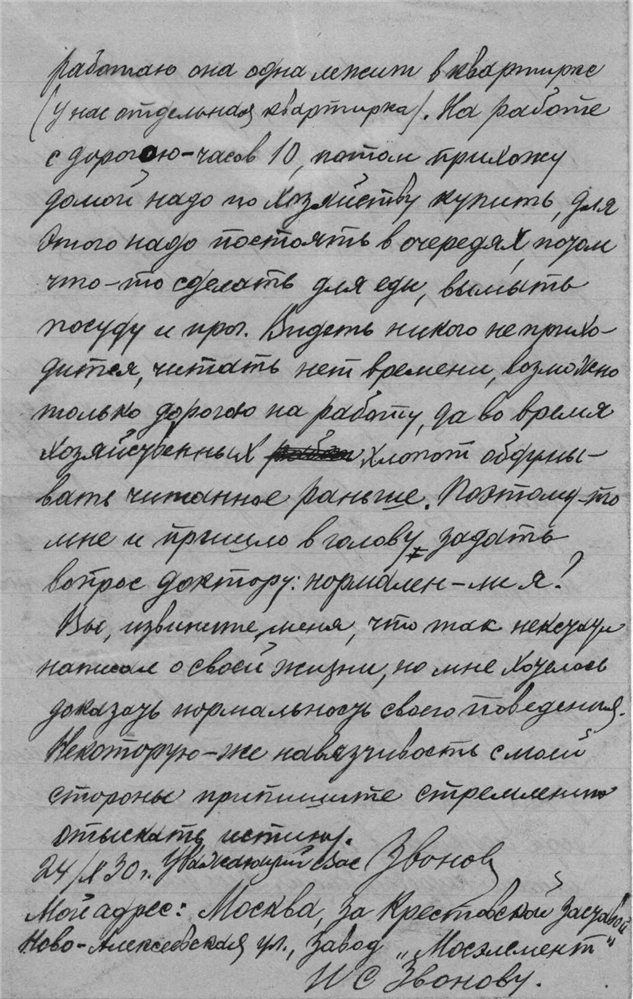 работаю она одна лежит в квартирке
(у нас отдельная квартирка). На работе
с дорогою-часов 10, потом прихожу
домой надо по хозяйству купить, для
этого надо постоять в очередях, потом
что-то сделать для еды, вымыть
посуду и проч. Видеть никого не прихо-
дится, читать нет времени, возможно
только дорогою на работу, да во время
хозяйственных хлопот обдумы-
вать читанное раньше. Поэтому-то
мне и пришло в голову задать
вопрос доктору: нормален-ли я?
Вы, извините меня, что так
написал о своей жизни, но мне хотелось
доказать нормальность своего поведения.
Некоторую-же навязчивость с моей
стороны припишите стремлению
отыскать истину.
24/X 30 г. Уважающий Вас Звонов
Мой адрес: Москва, за Крестовской заставой
Ново-Алексеевская ул., завод „Мосэлемент"
И С Звонову.